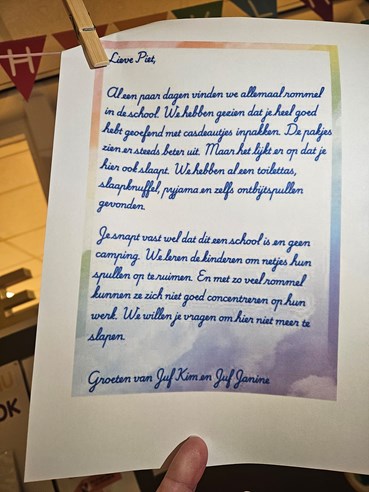 Lieve Piet,
Al een paar dagen vinden we allemaal rommel
in de school. We hebben gezien dat je heel goed
hebt geoefend met cadeautjes inpakken. De pakjes
zien er steeds beter uit. Maar het lijkt er op dat je
hier ook slaapt. We hebben al een toilettas,
slaapknuffel, pyjama en zelfs ontbijtspullen
gevonden.
Je snapt vast wel dat dit een school is en geen
camping. We leren de kinderen om netjes hun
spullen op te ruimen. En met zo veel rommel
kunnen ze zich niet goed concentreren op hun
werk. We willen je vragen om hier niet meer te
slapen.
Groeten van Juf Kim en Juf Janine
H
OK